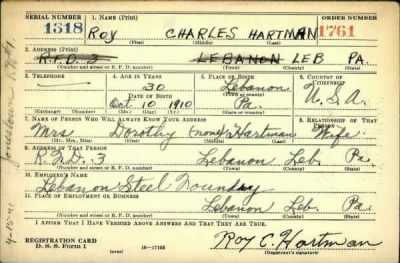 SERIAL NUMBER 1. NAME (Print) ORDER NUMBER
1318 Roy CHARLES HARTMAN 1761
(First) (Middle) (Last)
2. ADDRESS (Print)
R.F.D. 3 LEBANON LEB PA.
(Number and street or R. F. D. number) (Town) (County) (State)
3. TELEPHONE 4. AGE IN YEARS 5. PLACE OF BIRTH 6. COUNTRY OF CITIZENSHIP
30 Lebanon
DATE OF BIRTH (Town or county)
Oct. 10 1910 Pa. U.S.A.
(Exchange) (Number) (Mo.) (Day) (Yr.) (State or country)
7. NAME OF PERSON WHO WILL ALWAYS KNOW YOUR ADDRESS 8. RELATIONSHIP OF THAT PERSON
Mrs Dorothy (none) Hartman Wife
(Mr., Mrs., Miss) (First) (Middle) (Last)
9. ADDRESS OF THAT PERSON
R.F.D. 3 Lebanon Leb. Pa.
(Number and street or R. F. D. number) (Town) (County) (State)
10. EMPLOYER'S NAME
Lebanon Steel Founday
11. PLACE OF EMPLOYMENT OR BUSINESS
Lebanon Leb. Pa.
(Number and street or R. F. D. number) (Town) (County) (State)
I AFFIRM THAT I HAVE VERIFIED ABOVE ANSWERS AND THAT THEY ARE TRUE.
REGISTRATION CARD
D. S. S. Form 1 (over) 16—17105 Roy C. Hartman
(Registrant's signature)
Jonestown
4-15-41